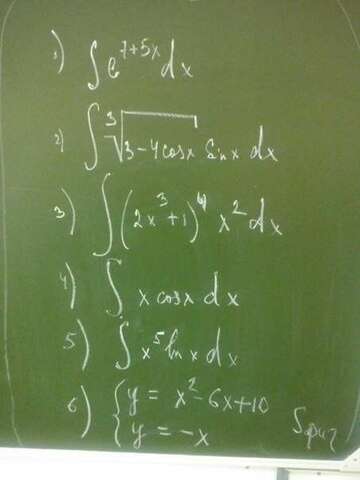 1) ∫ e^{7+5x} dx
2) ∫ ∛(3-4cosx) sinx dx
3) ∫ (2x³+1)⁴ x² dx
4) ∫ x cosx dx
5) ∫ x⁵ ln x dx
6) { y = x²-6x+10
y = -x Sфиг